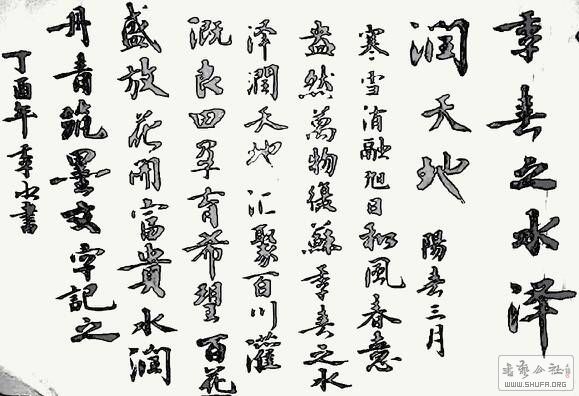 季春之水泽
润天地 陽春三月
寒雪消融旭日和風春意
盎然萬物復蘇季春之水
泽潤天地 汇聚百川灌
溉良田孕育希望百花
盛放花開富貴水润
丹青筑墨文字記之
丁酉年季水書
书艺公社
WWW.SHUFA.ORG